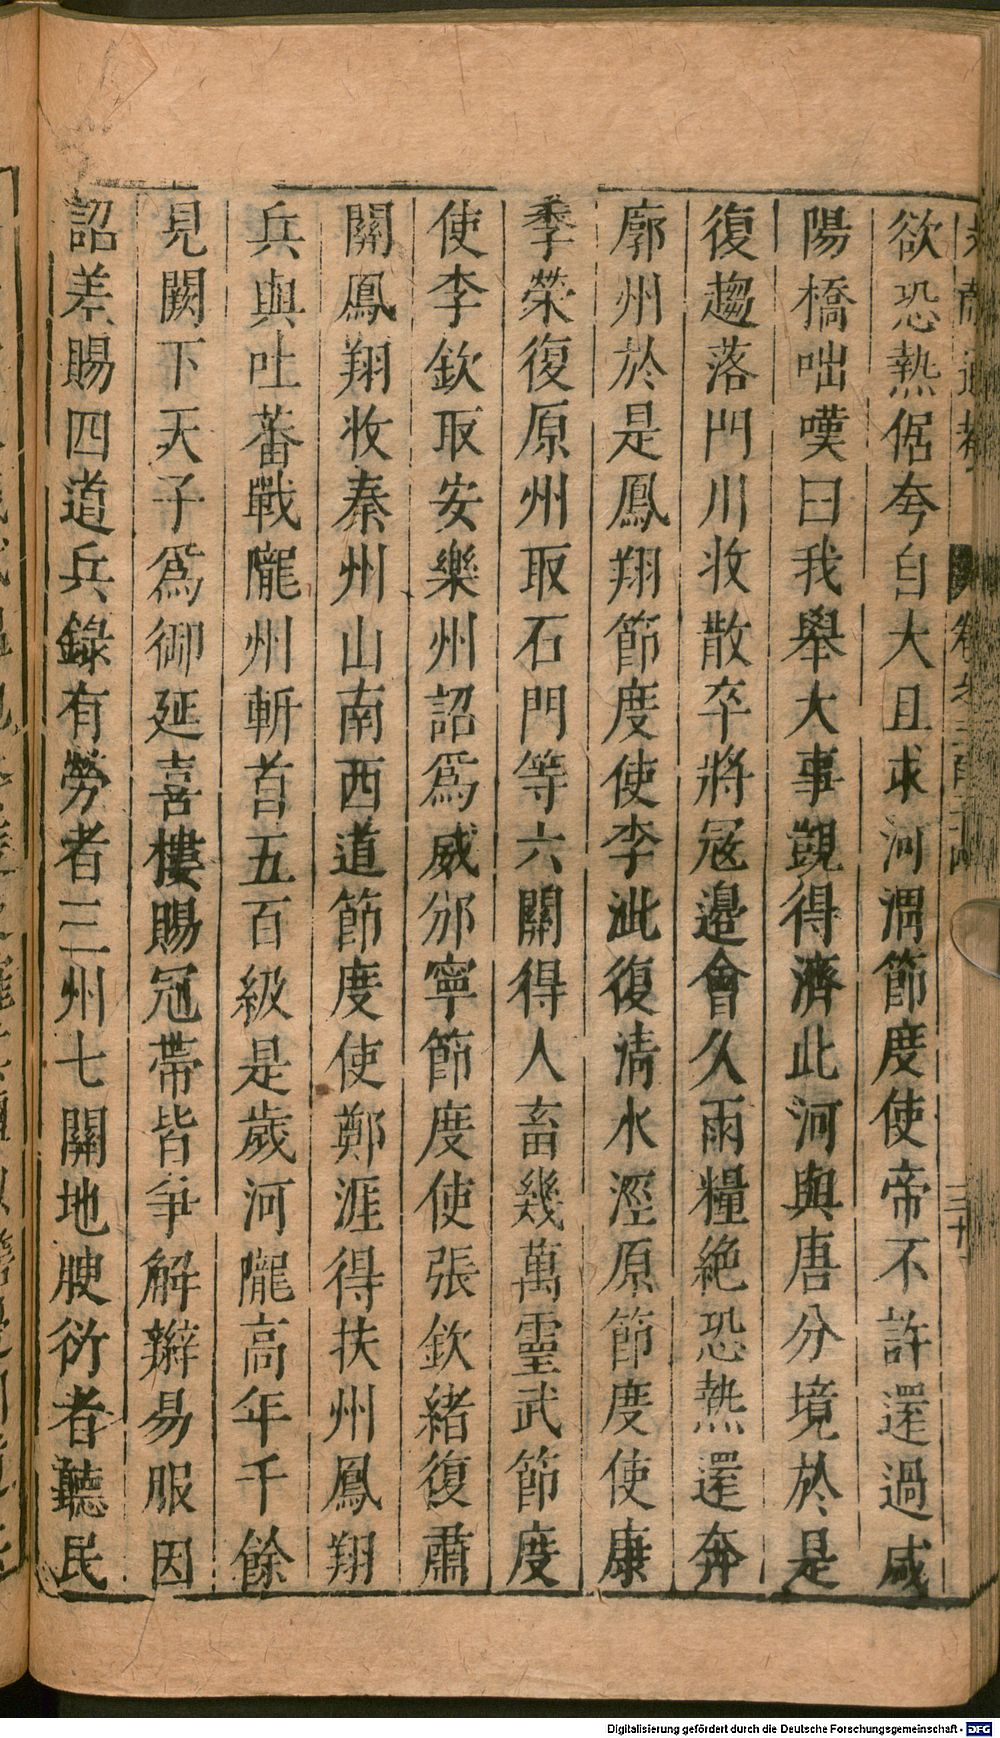 欲恐熱倨夸自大且求河渭節度使帝不許還過咸
陽橋咄嘆曰我舉大事覬得濟此河與唐分境於是
復趨落門川收散卒將寇邊會久雨糧絶恐熱還奔
廓州於是鳳翔節度使李玭復清水涇原節度使康
季榮復原州取石門等六關得人畜幾萬靈武節度
使李欽取安樂州詔爲威州邠寧節度使張欽緒復蕭
關鳳翔收秦州山南西道節度使鄭涯得扶州鳳翔
兵與吐蕃戰隴州斬首五百級是歲河隴高年千餘
見闕下天子爲御延喜樓賜冠帶皆爭解辮易服因
詔差賜四道兵錄有勞者三州七關地腴衍者聽民
Digitalisierung gefördert durch die Deutsche Forschungsgemeinschaft - DFG